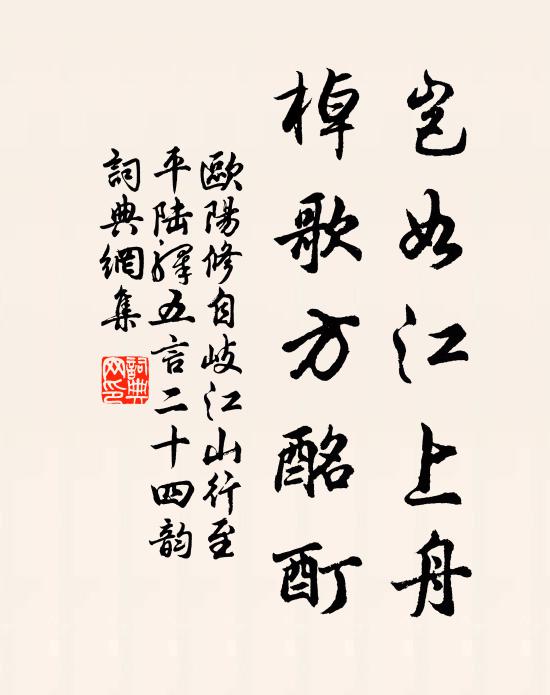 岂如江上舟
棹歌方酩酊
歐陽修自岐江山行至
平陆驿五言二十四韵
詞典網集
詞典網印